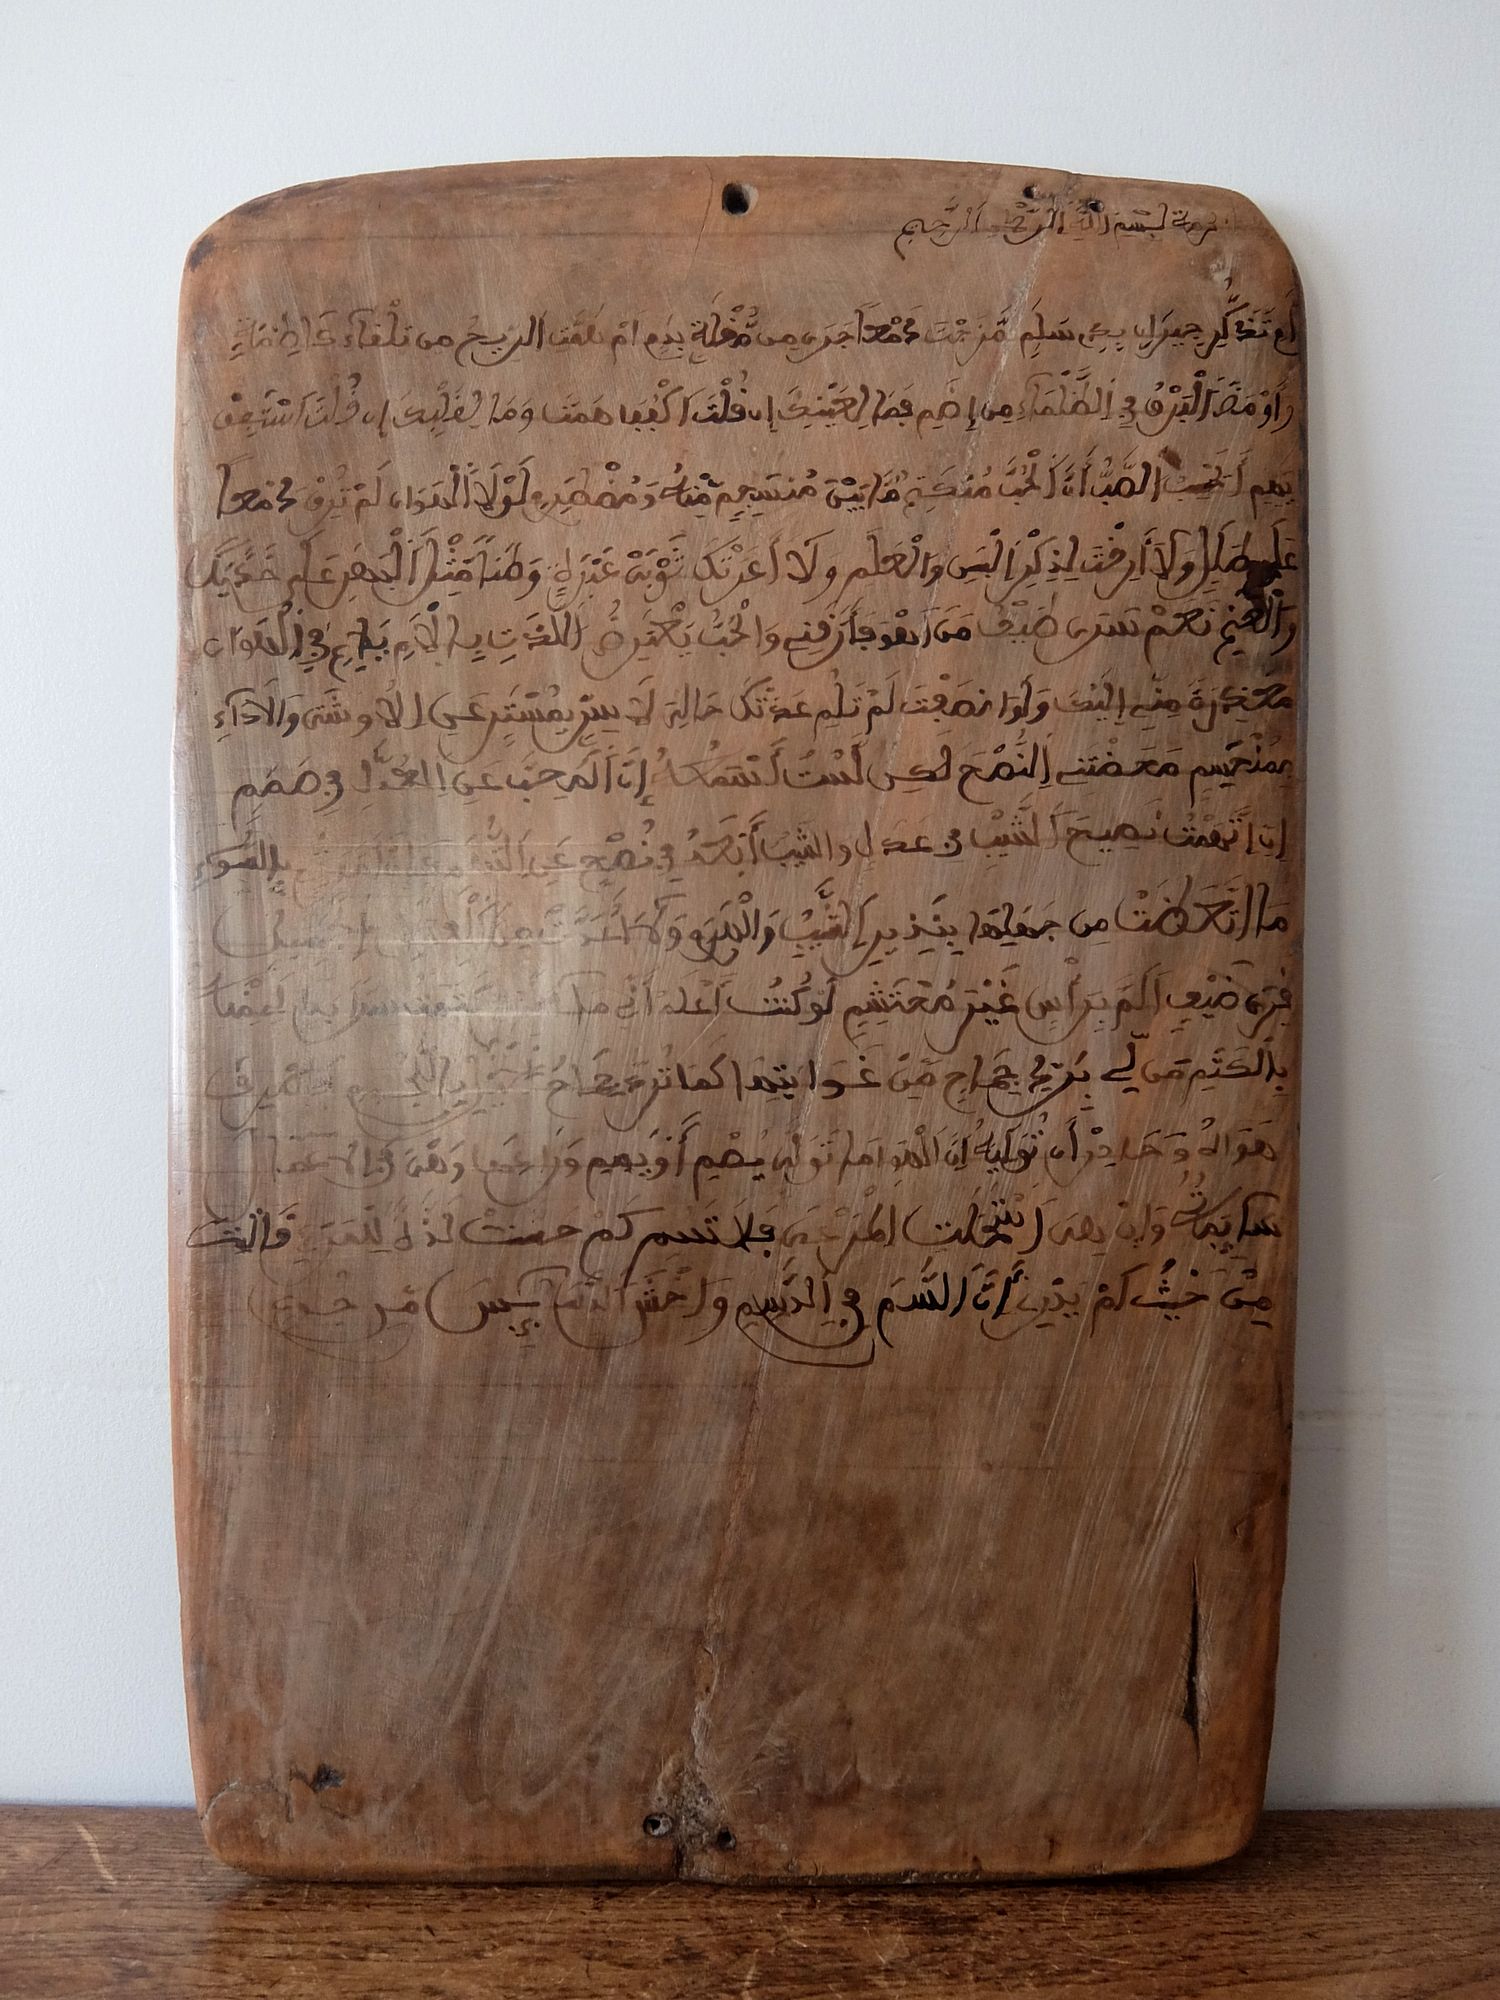 بسم الله الرحمن الرحيم
أمن تذكر جيران بذي سلم مزجت دمعا جرى من مقلة بدم أم هبت الريح من تلقاء كاظمة
وأومض البرق في الظلماء من إضم فما لعينيك إن قلت اكففا همتا وما لقلبك إن قلت استفق
يهم أيحسب الصب أن الحب منكتم ما بين منسجم منه ومضطرم لولا الهوى لم ترق دمعا
على طلل ولا أرقت لذكر البان والعلم ولا أعرتك ثوبى عبرة وضنا مثل البهار على خديك
والعنم نعم سرى طيف من أهوى فأرقني والحب يعترض اللذات بالألم يا لائمي في الهوى
معذرة مني إليك ولو أنصفت لم تلم عدتك حالي لا سري بمستتر عن الوشاة ولا دائي
بمنحسم محضتني النصح لكن لست أسمعه إن المحب عن العذال في صمم
إني اتهمت نصيح الشيب في عذل والشيب أبعد في نصح عن التهم بالسوء
ما اتعظت من جهلها بنذير الشيب والهرم ولا أعدت من الفعل الجميل
قرى ضيف ألم برأس غير محتشم لو كنت أعلم أني ما
بالكتم من لي برد جماح من غوايتها كما ترد جماح الخيل باللجم فاصرف
هواها وحاذر أن توليه إن الهوى ما تولى يصم أو يصم وراعها وهي في الاعمال
سائمة وإن هي استحلت المرعى فلا تسم كم حسنت لذة للمرء قاتلة
من حيث لم يدر أن السم في الدسم واخش الدسائس من جوع